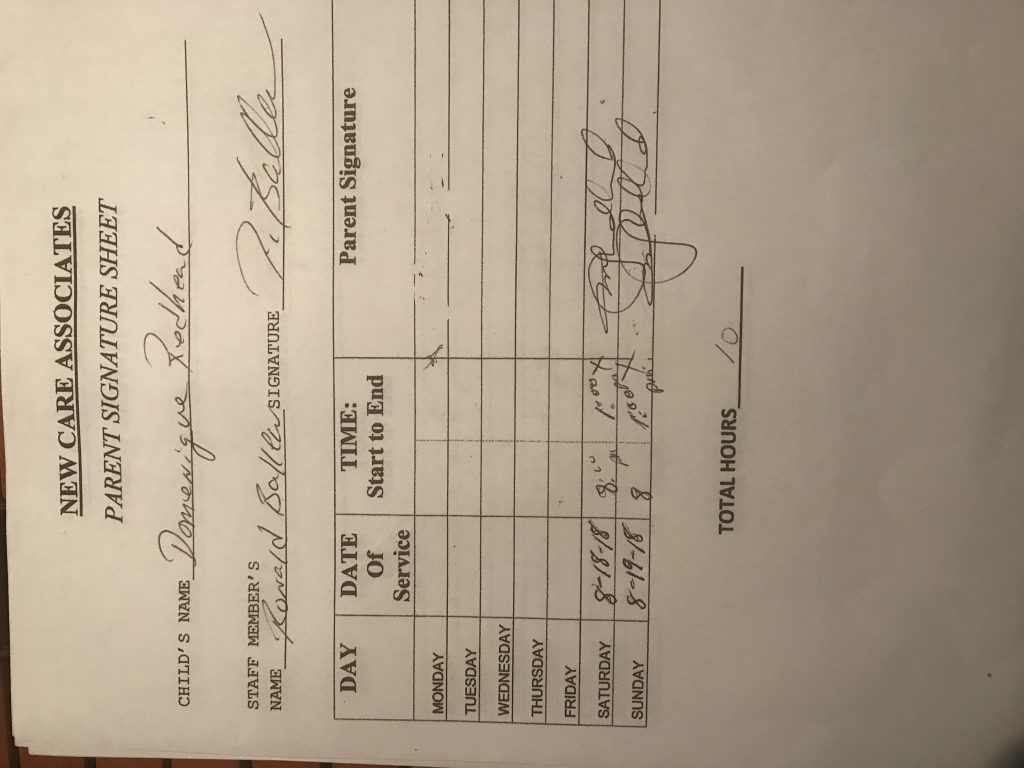 NEW CARE ASSOCIATES
PARENT SIGNATURE SHEET
CHILD'S NAME Domenique Redhead
STAFF MEMBER'S
NAME Ronald Baller SIGNATURE
DAY DATE Of Service TIME: Start to End Parent Signature
MONDAY
TUESDAY
WEDNESDAY
THURSDAY
FRIDAY
SATURDAY 8-18-18 8:00 1:00
SUNDAY 8-19-18 8 1:00 pm
TOTAL HOURS 10